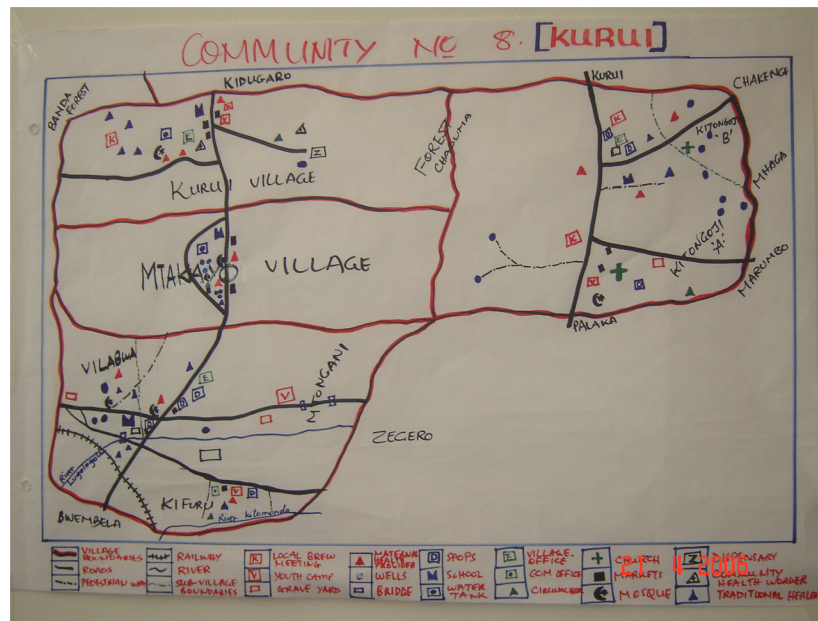 COMMUNITY No 8. [KURUI]
BANDA FOREST
KIDUGARO
KURUI
CHAKENGE
KITONGOJI 'B'
FOREST
MHAGA
KURUI VILLAGE
MTAKAYO VILLAGE
KITONGOJI 'A'
MARUMBO
PALAKA
VILABWA
MTONGANI
ZEGERO
River
KIFURU
BWEMBELA
River Kitomondo
VILLAGE BOUNDARIES
ROADS
PEDESTRIAN WAY
RAILWAY
RIVER
SUB-VILLAGE BOUNDARIES
K LOCAL BREW MEETING
V YOUTH CAMP
GRAVE YARD
MATERNAL HEALTH PROVIDER
WELLS
BRIDGE
D SHOPS
SCHOOL
WATER TANK
E VILLAGE OFFICE
CCM OFFICE
CIRCUMCISER
CHURCH
MARKETS
MOSQUE
Z DISPENSARY
COMMUNITY HEALTH WORKER
TRADITIONAL HEALER
21 4 2006